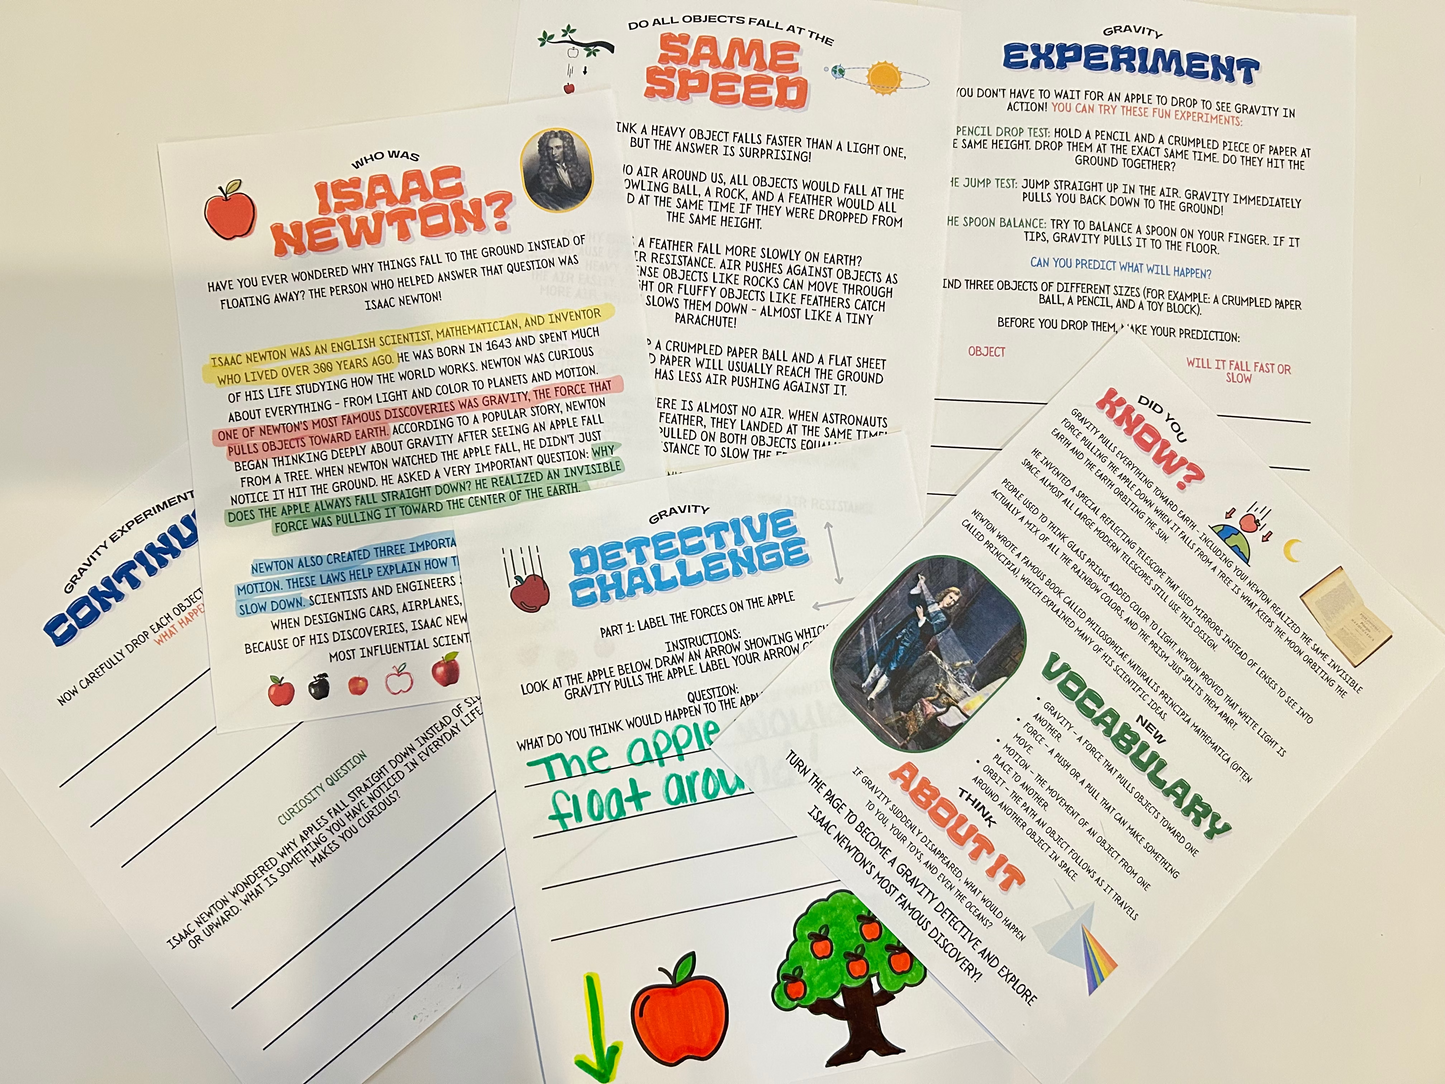 WHO WAS
ISAAC
NEWTON?
HAVE YOU EVER WONDERED WHY THINGS FALL TO THE GROUND INSTEAD OF
FLOATING AWAY? THE PERSON WHO HELPED ANSWER THAT QUESTION WAS
ISAAC NEWTON!
ISAAC NEWTON WAS AN ENGLISH SCIENTIST, MATHEMATICIAN, AND INVENTOR
WHO LIVED OVER 300 YEARS AGO. HE WAS BORN IN 1643 AND SPENT MUCH
OF HIS LIFE STUDYING HOW THE WORLD WORKS. NEWTON WAS CURIOUS
ABOUT EVERYTHING - FROM LIGHT AND COLOR TO PLANETS AND MOTION.
ONE OF NEWTON'S MOST FAMOUS DISCOVERIES WAS GRAVITY, THE FORCE THAT
PULLS OBJECTS TOWARD EARTH. ACCORDING TO A POPULAR STORY, NEWTON
BEGAN THINKING DEEPLY ABOUT GRAVITY AFTER SEEING AN APPLE FALL
FROM A TREE. WHEN NEWTON WATCHED THE APPLE FALL, HE DIDN'T JUST
NOTICE IT HIT THE GROUND. HE ASKED A VERY IMPORTANT QUESTION: WHY
DOES THE APPLE ALWAYS FALL STRAIGHT DOWN? HE REALIZED AN INVISIBLE
FORCE WAS PULLING IT TOWARD THE CENTER OF THE EARTH.
NEWTON ALSO CREATED THREE IMPORTA
MOTION. THESE LAWS HELP EXPLAIN HOW T
SLOW DOWN. SCIENTISTS AND ENGINEERS
WHEN DESIGNING CARS, AIRPLANES,
BECAUSE OF HIS DISCOVERIES, ISAAC NEW
MOST INFLUENTIAL SCIENT
DO ALL OBJECTS FALL AT THE
SAME
SPEED
INK A HEAVY OBJECT FALLS FASTER THAN A LIGHT ONE,
BUT THE ANSWER IS SURPRISING!
O AIR AROUND US, ALL OBJECTS WOULD FALL AT THE
OWLING BALL, A ROCK, AND A FEATHER WOULD ALL
D AT THE SAME TIME IF THEY WERE DROPPED FROM
THE SAME HEIGHT.
A FEATHER FALL MORE SLOWLY ON EARTH?
IR RESISTANCE. AIR PUSHES AGAINST OBJECTS AS
ENSE OBJECTS LIKE ROCKS CAN MOVE THROUGH
HT OR FLUFFY OBJECTS LIKE FEATHERS CATCH
SLOWS THEM DOWN - ALMOST LIKE A TINY
PARACHUTE!
P A CRUMPLED PAPER BALL AND A FLAT SHEET
D PAPER WILL USUALLY REACH THE GROUND
HAS LESS AIR PUSHING AGAINST IT.
ERE IS ALMOST NO AIR. WHEN ASTRONAUTS
FEATHER, THEY LANDED AT THE SAME TIME
PULLED ON BOTH OBJECTS EQUA
STANCE TO SLOW THE
GRAVITY
EXPERIMENT
YOU DON'T HAVE TO WAIT FOR AN APPLE TO DROP TO SEE GRAVITY IN
ACTION! YOU CAN TRY THESE FUN EXPERIMENTS:
PENCIL DROP TEST: HOLD A PENCIL AND A CRUMPLED PIECE OF PAPER AT
E SAME HEIGHT. DROP THEM AT THE EXACT SAME TIME. DO THEY HIT THE
GROUND TOGETHER?
HE JUMP TEST: JUMP STRAIGHT UP IN THE AIR. GRAVITY IMMEDIATELY
PULLS YOU BACK DOWN TO THE GROUND!
HE SPOON BALANCE: TRY TO BALANCE A SPOON ON YOUR FINGER. IF IT
TIPS, GRAVITY PULLS IT TO THE FLOOR.
CAN YOU PREDICT WHAT WILL HAPPEN?
IND THREE OBJECTS OF DIFFERENT SIZES (FOR EXAMPLE: A CRUMPLED PAPER
BALL, A PENCIL, AND A TOY BLOCK).
BEFORE YOU DROP THEM, MAKE YOUR PREDICTION:
OBJECT
WILL IT FALL FAST OR
SLOW
GRAVITY EXPERIMENT
CONTINU
NOW CAREFULLY DROP EACH OBJECT
WHAT HAPPE
CURIOSITY QUESTION
ISAAC NEWTON WONDERED WHY APPLES FALL STRAIGHT DOWN INSTEAD OF SI
OR UPWARD. WHAT IS SOMETHING YOU HAVE NOTICED IN EVERYDAY LIFE
MAKES YOU CURIOUS?
GRAVITY
DETECTIVE
CHALLENGE
PART 1: LABEL THE FORCES ON THE APPLE
INSTRUCTIONS:
LOOK AT THE APPLE BELOW. DRAW AN ARROW SHOWING WHICH
GRAVITY PULLS THE APPLE. LABEL YOUR ARROW
QUESTION:
WHAT DO YOU THINK WOULD HAPPEN TO THE APP
The apple
float arou
DID YOU
KNOW?
GRAVITY PULLS EVERYTHING TOWARD EARTH - INCLUDING YOU! NEWTON REALIZED THE SAME INVISIBLE
FORCE PULLING THE APPLE DOWN WHEN IT FALLS FROM A TREE IS WHAT KEEPS THE MOON ORBITING THE
EARTH AND THE EARTH ORBITING THE SUN.
HE INVENTED A SPECIAL REFLECTING TELESCOPE THAT USED MIRRORS INSTEAD OF LENSES TO SEE INTO
SPACE. ALMOST ALL LARGE MODERN TELESCOPES STILL USE THIS DESIGN.
PEOPLE USED TO THINK GLASS PRISMS ADDED COLOR TO LIGHT. NEWTON PROVED THAT WHITE LIGHT IS
ACTUALLY A MIX OF ALL THE RAINBOW COLORS, AND THE PRISM JUST SPLITS THEM APART.
NEWTON WROTE A FAMOUS BOOK CALLED PHILOSOPHIAE NATURALIS PRINCIPIA MATHEMATICA (OFTEN
CALLED PRINCIPIA), WHICH EXPLAINED MANY OF HIS SCIENTIFIC IDEAS.
NEW
VOCABULARY
• GRAVITY - A FORCE THAT PULLS OBJECTS TOWARD ONE
ANOTHER.
• FORCE - A PUSH OR A PULL THAT CAN MAKE SOMETHING
MOVE.
• MOTION - THE MOVEMENT OF AN OBJECT FROM ONE
PLACE TO ANOTHER.
• ORBIT - THE PATH AN OBJECT FOLLOWS AS IT TRAVELS
AROUND ANOTHER OBJECT IN SPACE.
THINK
ABOUT IT
IF GRAVITY SUDDENLY DISAPPEARED, WHAT WOULD HAPPEN
TO YOU, YOUR TOYS, AND EVEN THE OCEANS?
TURN THE PAGE TO BECOME A GRAVITY DETECTIVE AND EXPLORE
ISAAC NEWTON'S MOST FAMOUS DISCOVERY!